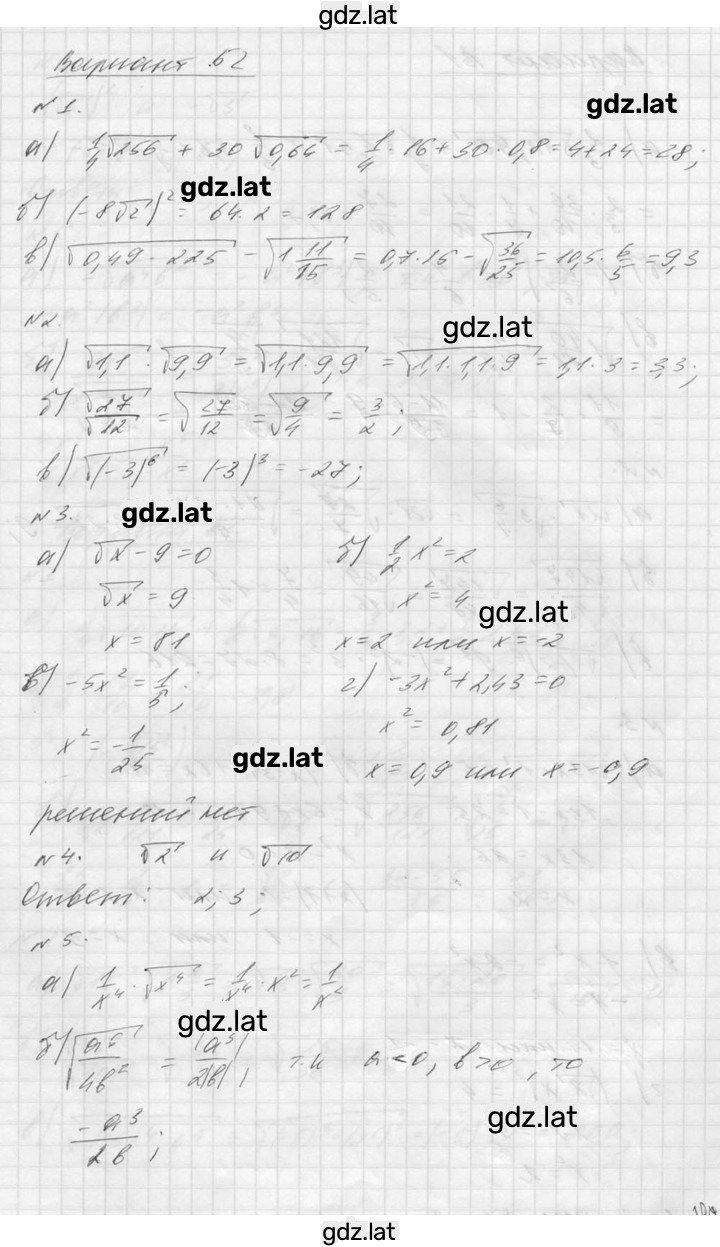 gdz.lat
Вариант Б2
№1.
gdz.lat
а) 1/4 √256 + 30 √0,64 = 1/4 · 16 + 30 · 0,8 = 4 + 24 = 28;
gdz.lat
б) (-8√2)² = 64 · 2 = 128
в) √(0,49 · 225) - √(1 11/15) = 0,7 · 16 - √(36/25) = 10,5 · 6/5 = 9,3
№2.
gdz.lat
а) √1,1 · √9,9 = √(1,1 · 9,9) = √(1,1 · 1,1 · 9) = 1,1 · 3 = 3,3;
б) √27/√12 = √(27/12) = √(9/4) = 3/2;
в) √(-3)⁶ = (-3)³ = -27;
№3.
gdz.lat
а) √x - 9 = 0
√x = 9
x = 81
б) 1/2 x² = 2
x² = 4
gdz.lat
x = 2 или x = -2
в) -5x² = 1/5;
x² = -1/25
gdz.lat
решений нет
г) -3x² + 2,43 = 0
x² = 0,81
x = 0,9 или x = -0,9
№4. √2 и √10
Ответ: 2; 3;
№5.
а) 1/x⁴ · √x⁴ = 1/x⁴ · x² = 1/x²
gdz.lat
б) √(a⁶/4b²) = |a³|/2|b|, т.к a < 0, b > 0, то
gdz.lat
-a³/2b;
gdz.lat